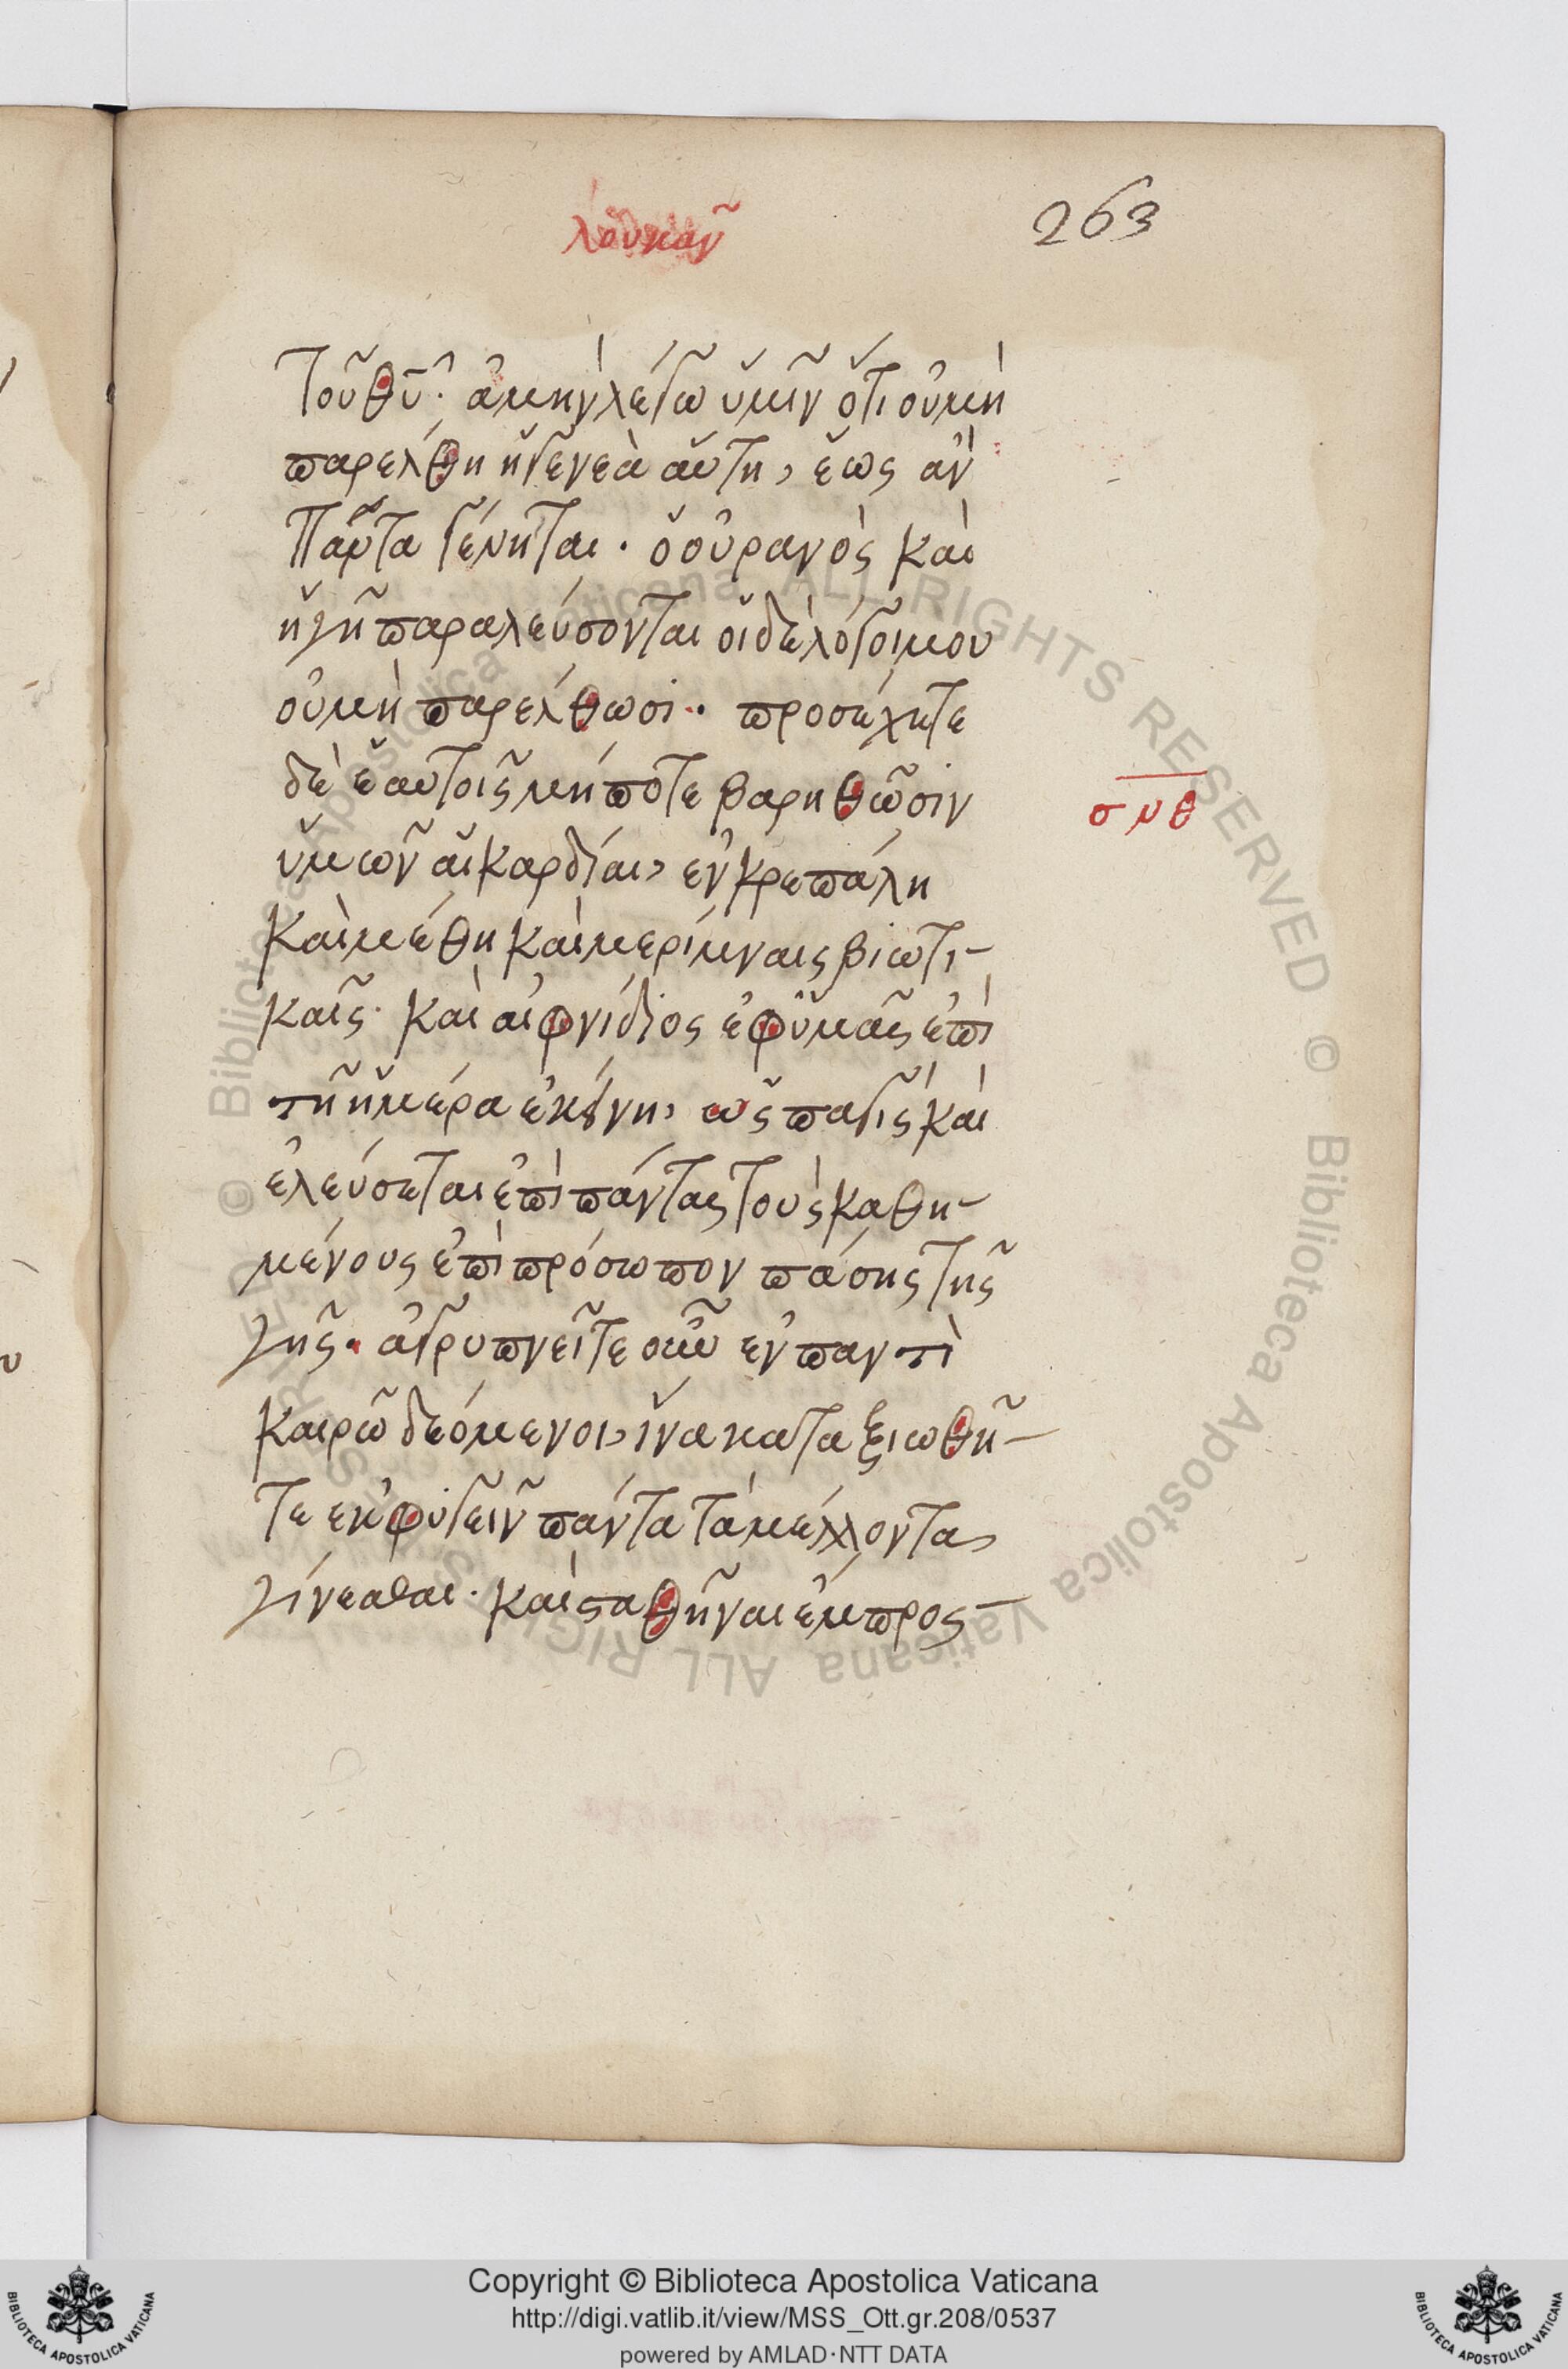 λουκᾶν
263
τοῦ θῦ· ἀμὴν λέγω ὑμῖν ὅτι οὐ μὴ
παρέλθη ἡ γενεὰ αὕτη, ἕως ἂν
πάντα γένηται· ὁ οὐρανὸς καὶ
ἡ γῆ παραλεύσονται οἱ δὲ λόγοι μου
οὐ μὴ παρέλθωσι·· προσέχητε
δὲ ἑαυτοῖς μήποτε βαρηθῶσιν
ὑμῶν αἱ καρδίαι, ἐν κρεπάλη
καὶ μέθη καὶ μερίμναις βιωτι-
καῖς· καὶ αἰφνίδιος ἐφ' ὑμᾶς ἐπὶ
τῆ ἡμέρα ἐκείνη, ὡς παγὶς καὶ
ἐλεύσεται ἐπὶ πάντας τοὺς καθη-
μένους ἐπὶ πρόσωπον πάσης τῆς
γῆς· ἀγρυπνεῖτε οὖν ἐν παντὶ
καιρῶ δεόμενοι, ἵνα καταξιωθῆ-
τε ἐκφυγεῖν πάντα τὰ μέλλοντα,
γίνεσθαι· καὶ σταθῆναι ἔμπροσ-
σμθ
Copyright © Biblioteca Apostolica Vaticana
http://digi.vatlib.it/view/MSS_Ott.gr.208/0537
powered by AMLAD·NTT DATA
BIBLIOTECA APOSTOLICA VATICANA
BIBLIOTECA APOSTOLICA VATICANA
© Biblioteca Apostolica Vaticana ALL RIGHTS RESERVED © Biblioteca Apostolica Vaticana ALL RIGHTS RESERVED